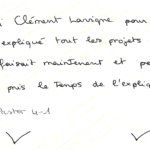 Clément Lavigne pour
expliqué tout les projets
faisait maintenent et pe
pris le Temps de l'expliqu
4-1